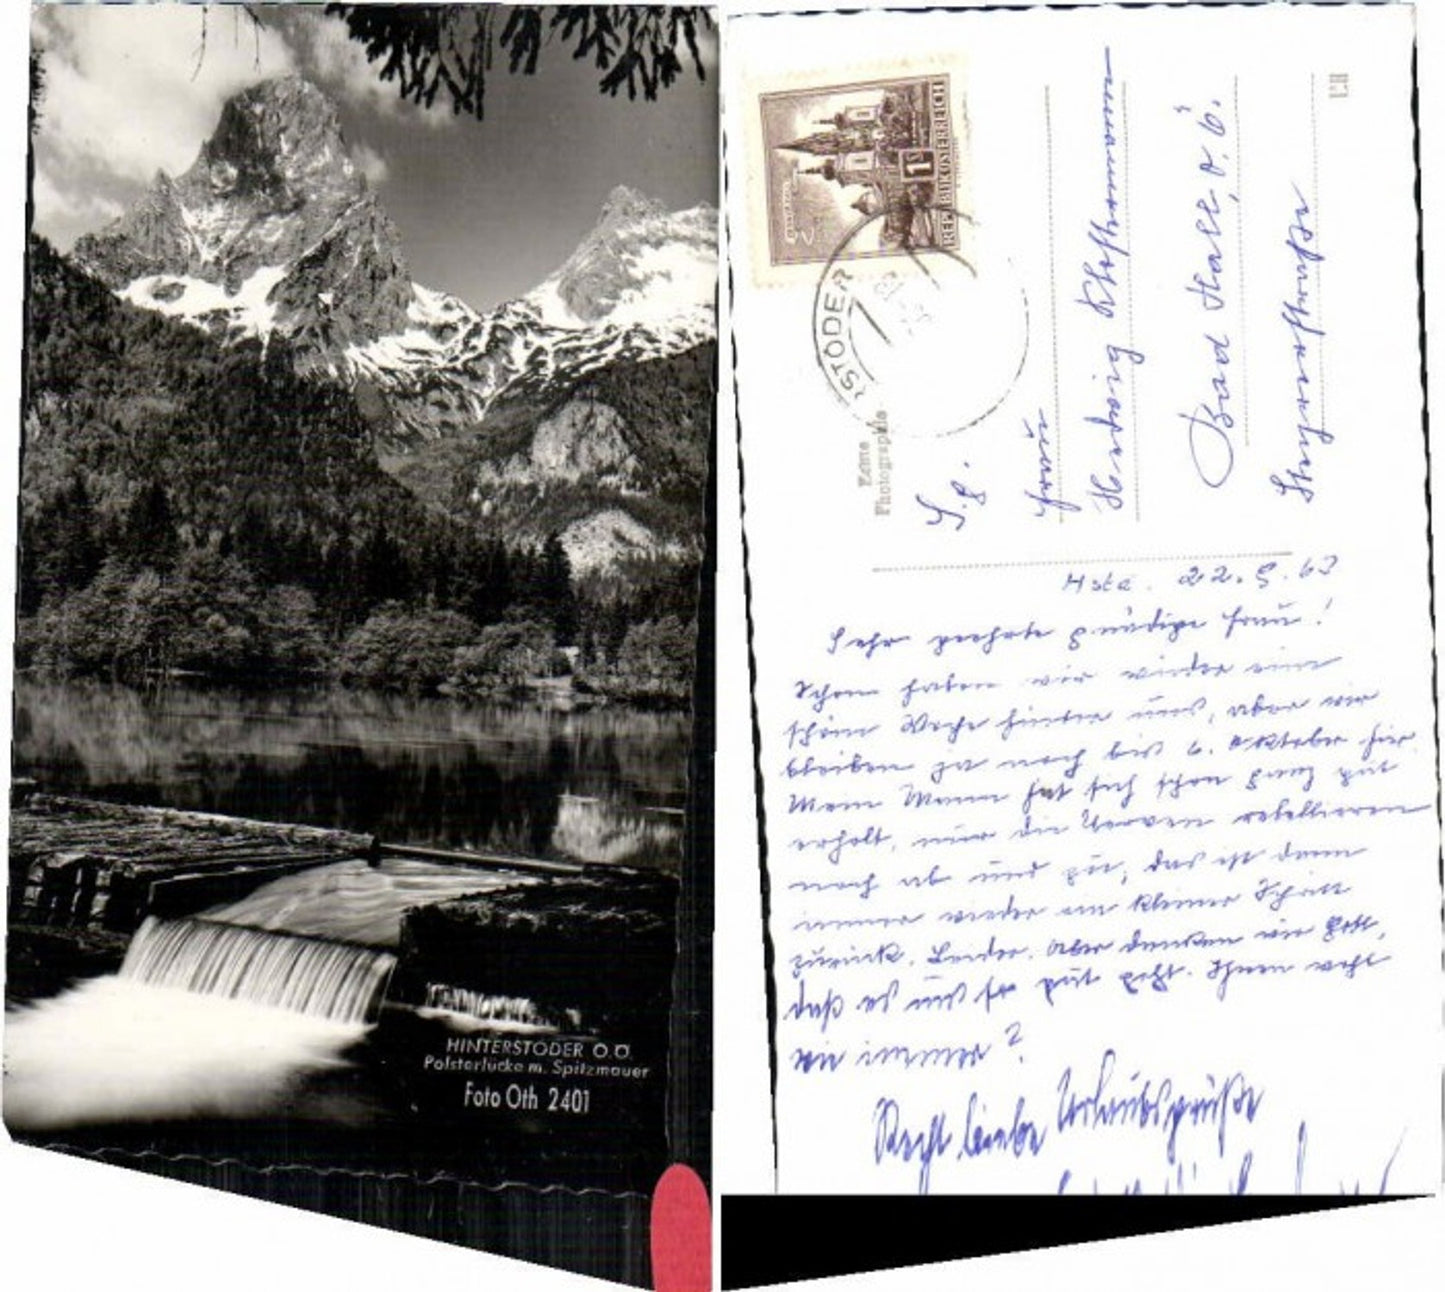 HINTERSTODER O.Ö.
Polsterlucke m. Spitzmauer
Foto Oth 2401
REPUBLIK ÖSTERREICH
1S
STODER
Echte
Photographie
S. g.
Frau
Hedwig
Bad Hall, O. Ö.
Steyrerstraße
Hstd. 22.9.63
Sehr geehrte gnädige Frau!
Schon haben wir wieder eine
schöne Woche hinter uns, aber wir
bleiben ja noch bis 6. Oktober hier.
Mein Mann hat sich schon ganz gut
erholt, nur die Nerven rebellieren
noch ab und zu, das ist dann
immer wieder ein kleiner Schritt
zurück. Leider. Aber danken wir Gott,
daß es uns so gut geht. Ihnen wohl
wie immer?
Recht liebe Urlaubsgrüße